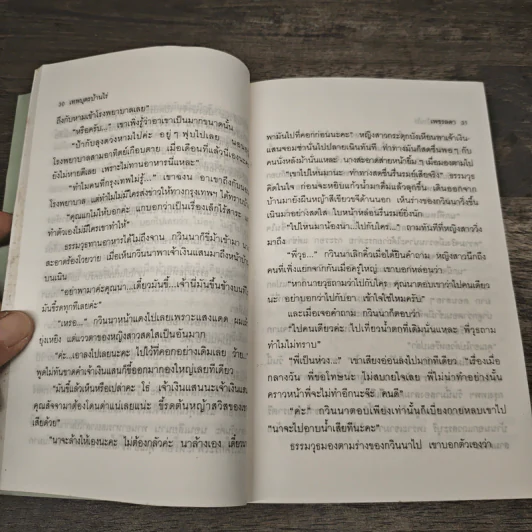 30 เทพบุตรบ้านไร่
ถึงกับหามเข้าโรงพยาบาลเลย"
"หรือครับ..." เขาเพิ่งรู้ว่าอาเขาเป็นมากขนาดนั้น
"ป้ากับลุงดวงหามไปค่ะ อยู่ๆ ฟุบไปเลย นอน
โรงพยาบาลสามอาทิตย์เกือบตาย เมื่อเดือนที่แล้วนี่เองนะคะ
ยังไม่หายดีเลย เพราะไม่ทานอาหารนี่แหละ"
"ทำไมคนที่กรุงเทพไม่รู้..." เขาฉงน อาเขาถึงกับนอน
โรงพยาบาล แต่ทำไมไม่มีใครส่งข่าวให้ทางกรุงเทพฯ ได้ทราบ
"คุณแกไม่ให้บอกค่ะ แกบอกว่าเป็นเรื่องเล็กไร้สาระ
ทำตัวเองไม่มีใครเขาทำให้"
ธรรมวุธทานอาหารได้ไม่ถึงจาน กวินนาก็ขี่ม้าเข้ามา
สะอาดร้องโวยวาย เมื่อเห็นกวินนาพาเจ้าเงินแสนมาถึงหน้าบ้าน
บนเนิน
"อย่าพามาค่ะคุณนา...เดี๋ยวมันขี้...เจ้านี่มันขี้นขึ้นข้างบน
มันขี้รดทุกที่เลยค่ะ"
"เหรอ..." กวินนาหน้าแดงไปเลยเพราะแสงแดด ผม
ยุ่งเหยิง แต่แววตาของหญิงสาวสดใสเป็นอันมาก
"ค่ะ...เอาลงไปเลยนะคะ ไปไว้ที่คอกอย่างเดิมเลย ว้าย...
พูดไม่ทันขาดคำเจ้าเงินแสนก็ขี้ออกมากองใหญ่เลยทีเดียว
"มันขี้แล้วเห็นหรือเปล่าคะ โธ่ เจ้าเงินแสนนะเจ้าเงิน
คุณลัจจามาต้องโดนด่าแน่เลยนะคะ ขี้รดต้นหญ้าสวิสของ
เสียด้วย"
"นาจะล้างให้เองนะคะ ไม่ต้องกลัวค่ะ นาล้างเอง เดี๋ยว
เพชรลดา 31
พามันไปที่คอกก่อนนะคะ" หญิงสาวกระตุกบังเหียนพาเจ้าเงิน
แสนจอมซ่านั้นไปปลายเนินทันที ท่าทางมันก็สดชื่นพอๆ กับ
คนนั่งหลังม้านั่นแหละ นางสะอาดส่ายหน้ายิ้มๆ เมื่อมองตามไป
"เขาไปไหนมานะ ท่าทางสดชื่นรื่นรมย์เสียจริง" ธรรมวุธ
คิดในใจ ก่อนจะหยิบแก้วน้ำมาดื่มแล้วลุกขึ้น เดินออกจาก
บ้านมายังผืนหญ้าสีเขียวขจีด้านนอก เห็นร่างของกวินนาวิ่งขึ้น
เนินมาอย่างสดใส ใบหน้าหล่อนรื่นรมย์ยิ่งนัก
"ไปไหนมาน้องนา...ไปกับใคร..." ถามทันทีที่หญิงสาววิ่ง
มาถึง
"พี่วุธ..." กวินนาเลิกคิ้วเมื่อได้ยินคำถาม หญิงสาวนึกถึง
คนที่เพิ่งแยกจากกันเมื่อครู่ใหญ่ เขาบอกหล่อนว่า
"หากนายวุธถามว่าไปกับใคร คุณตอบเขาว่าไปคนเดียว
นะ อย่าบอกว่าไปกับผม เข้าใจใช่ไหมครับ"
และเมื่อเจอคำถาม กวินนาก็ตอบว่า
"ไปคนเดียวค่ะ ไปเที่ยวน้ำตกที่เดิมนั่นแหละ พี่วุธถาม
ทำไมไม่ทราบ"
"พี่เป็นห่วง..." เขาเสียงอ่อนลงไปมากทีเดียว "เรื่องเมื่อ
กลางวัน พี่ขอโทษนะ ไม่สบายใจเลย พี่ไม่น่าทำอย่างนั้น
คราวหน้าพี่จะไม่ทำอีกนะจ๊ะ คนดี"
"ค่ะ" กวินนาตอบเพียงเท่านั้นก็เบี่ยงกายหลบเขาไป
"น่าจะไปอาบน้ำเสียทีนะคะ"
ธรรมวุธมองตามร่างของกวินนาไป เขาบอกตัวเองว่า